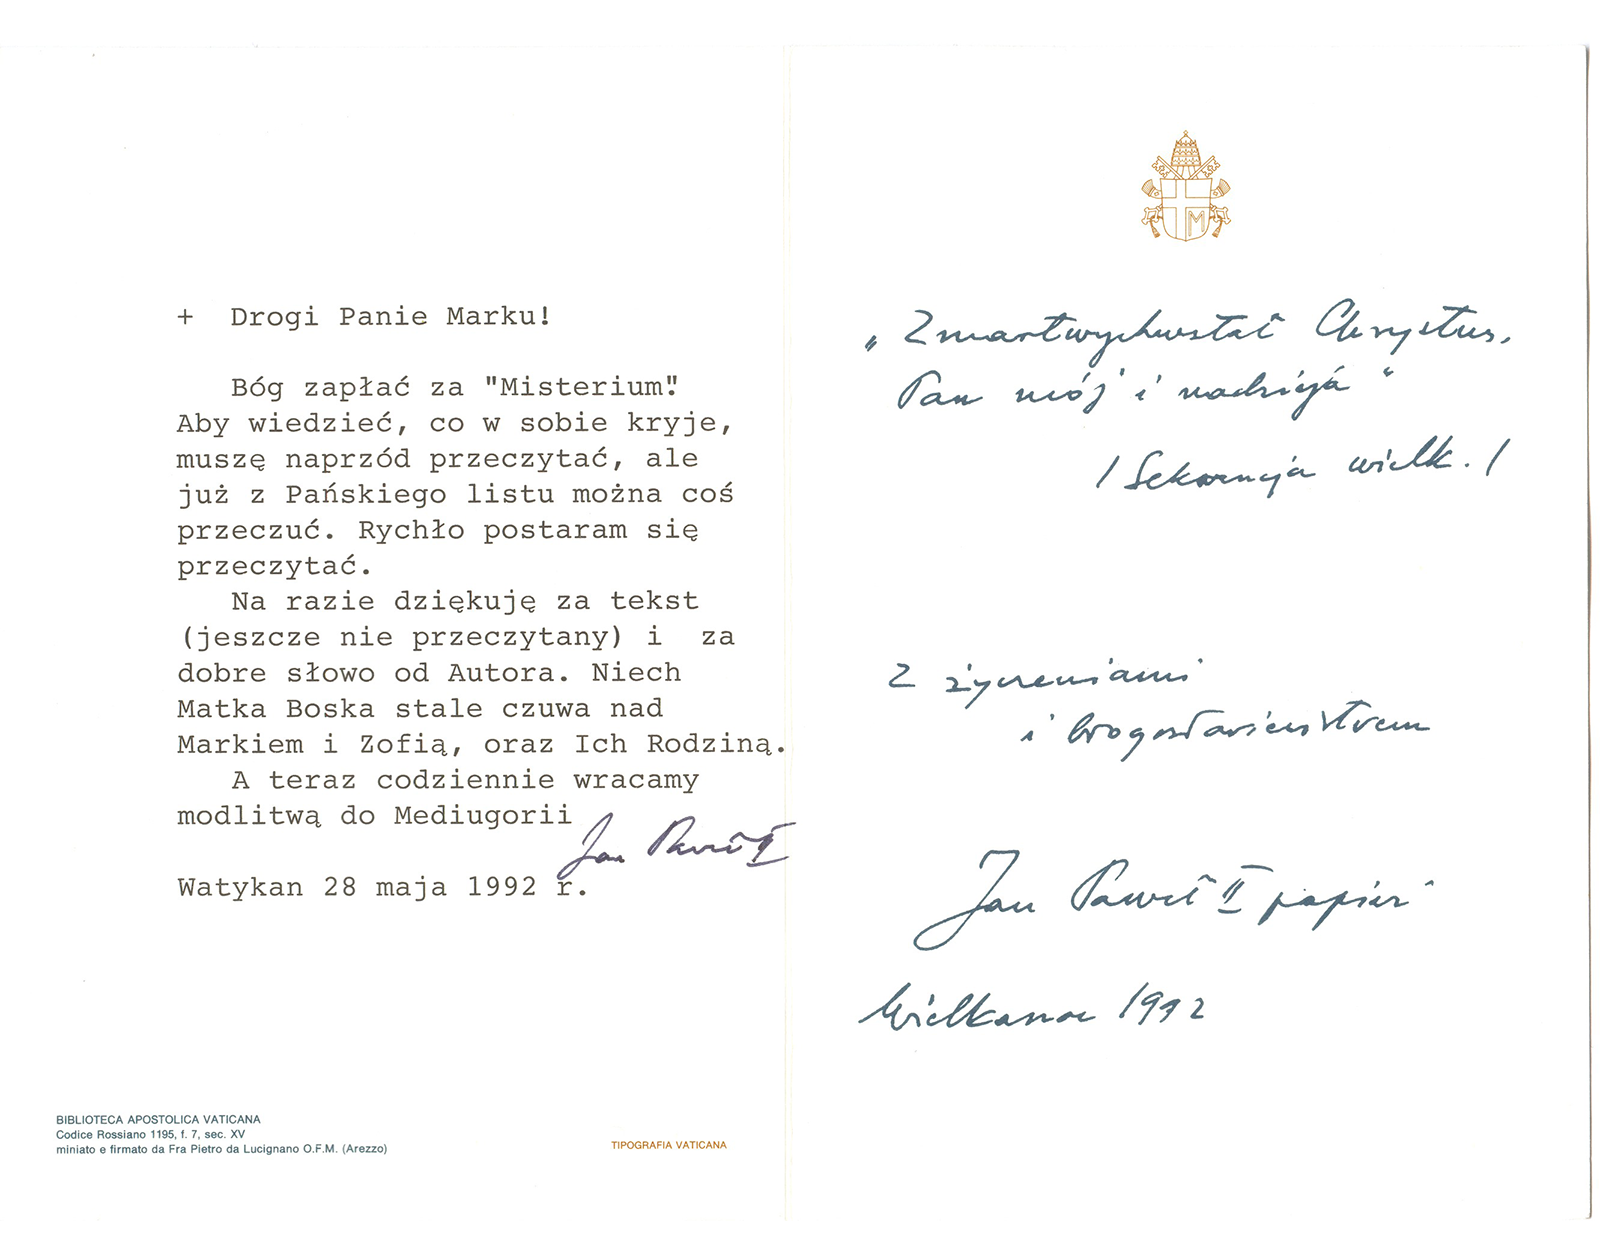 +  Drogi Panie Marku!
Bóg zapłać za "Misterium".
Aby wiedzieć, co w sobie kryje,
muszę naprzód przeczytać, ale
już z Pańskiego listu można coś
przeczuć. Rychło postaram się
przeczytać.
Na razie dziękuję za tekst
(jeszcze nie przeczytany) i  za
dobre słowo od Autora. Niech
Matka Boska stale czuwa nad
Markiem i Zofią, oraz Ich Rodziną.
A teraz codziennie wracamy
modlitwą do Mediugorii
Jan Paweł II
Watykan 28 maja 1992 r.
BIBLIOTECA APOSTOLICA VATICANA
Codice Rossiano 1195, f. 7, sec. XV
miniato e firmato da Fra Pietro da Lucignano O.F.M. (Arezzo)
TIPOGRAFIA VATICANA
M
„Zmartwychwstał Chrystus,
Pan mój i nadzieja"
/Sekwencja wielk./
z życzeniami
i błogosławieństwem
Jan Paweł II papież
Wielkanoc 1992